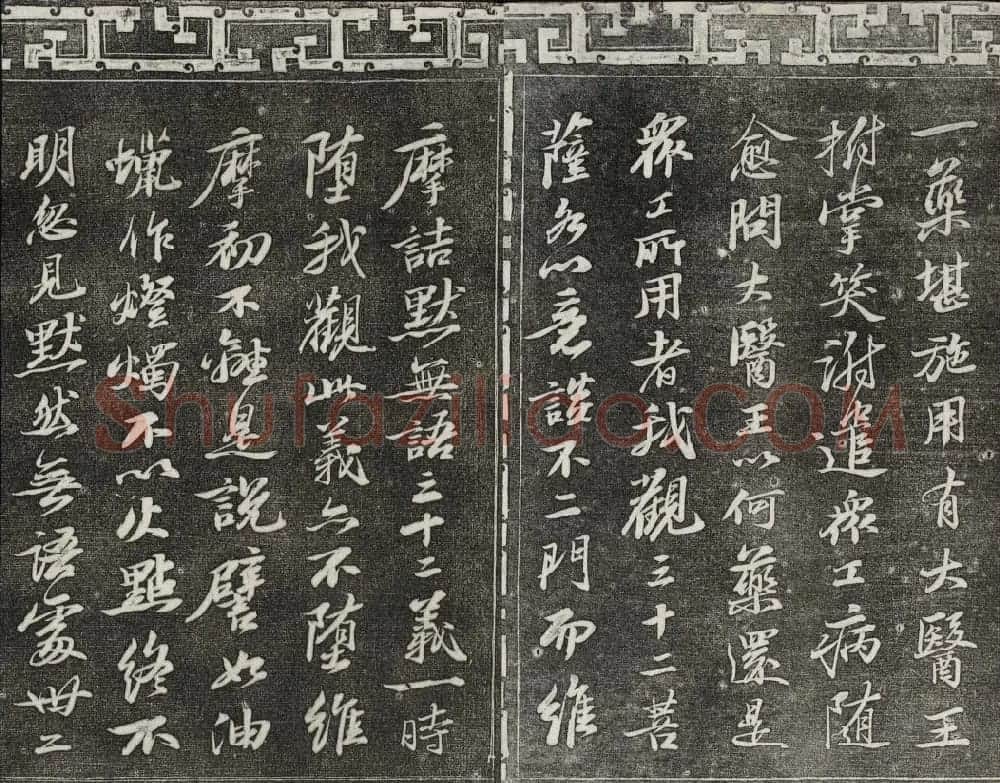 一藥堪施用有大醫王
拊掌笑謝遣衆工病隨
愈問大醫王以何藥還是
衆工所用者我觀三十二菩
薩各以意談不二門而維
摩詰默無語三十二義一時
墮我觀此義亦不墮維
摩初不離是說譬如油
蠟作燈燭不以火點終不
明忽見默然無語處卅二
Shufaziliao.COM